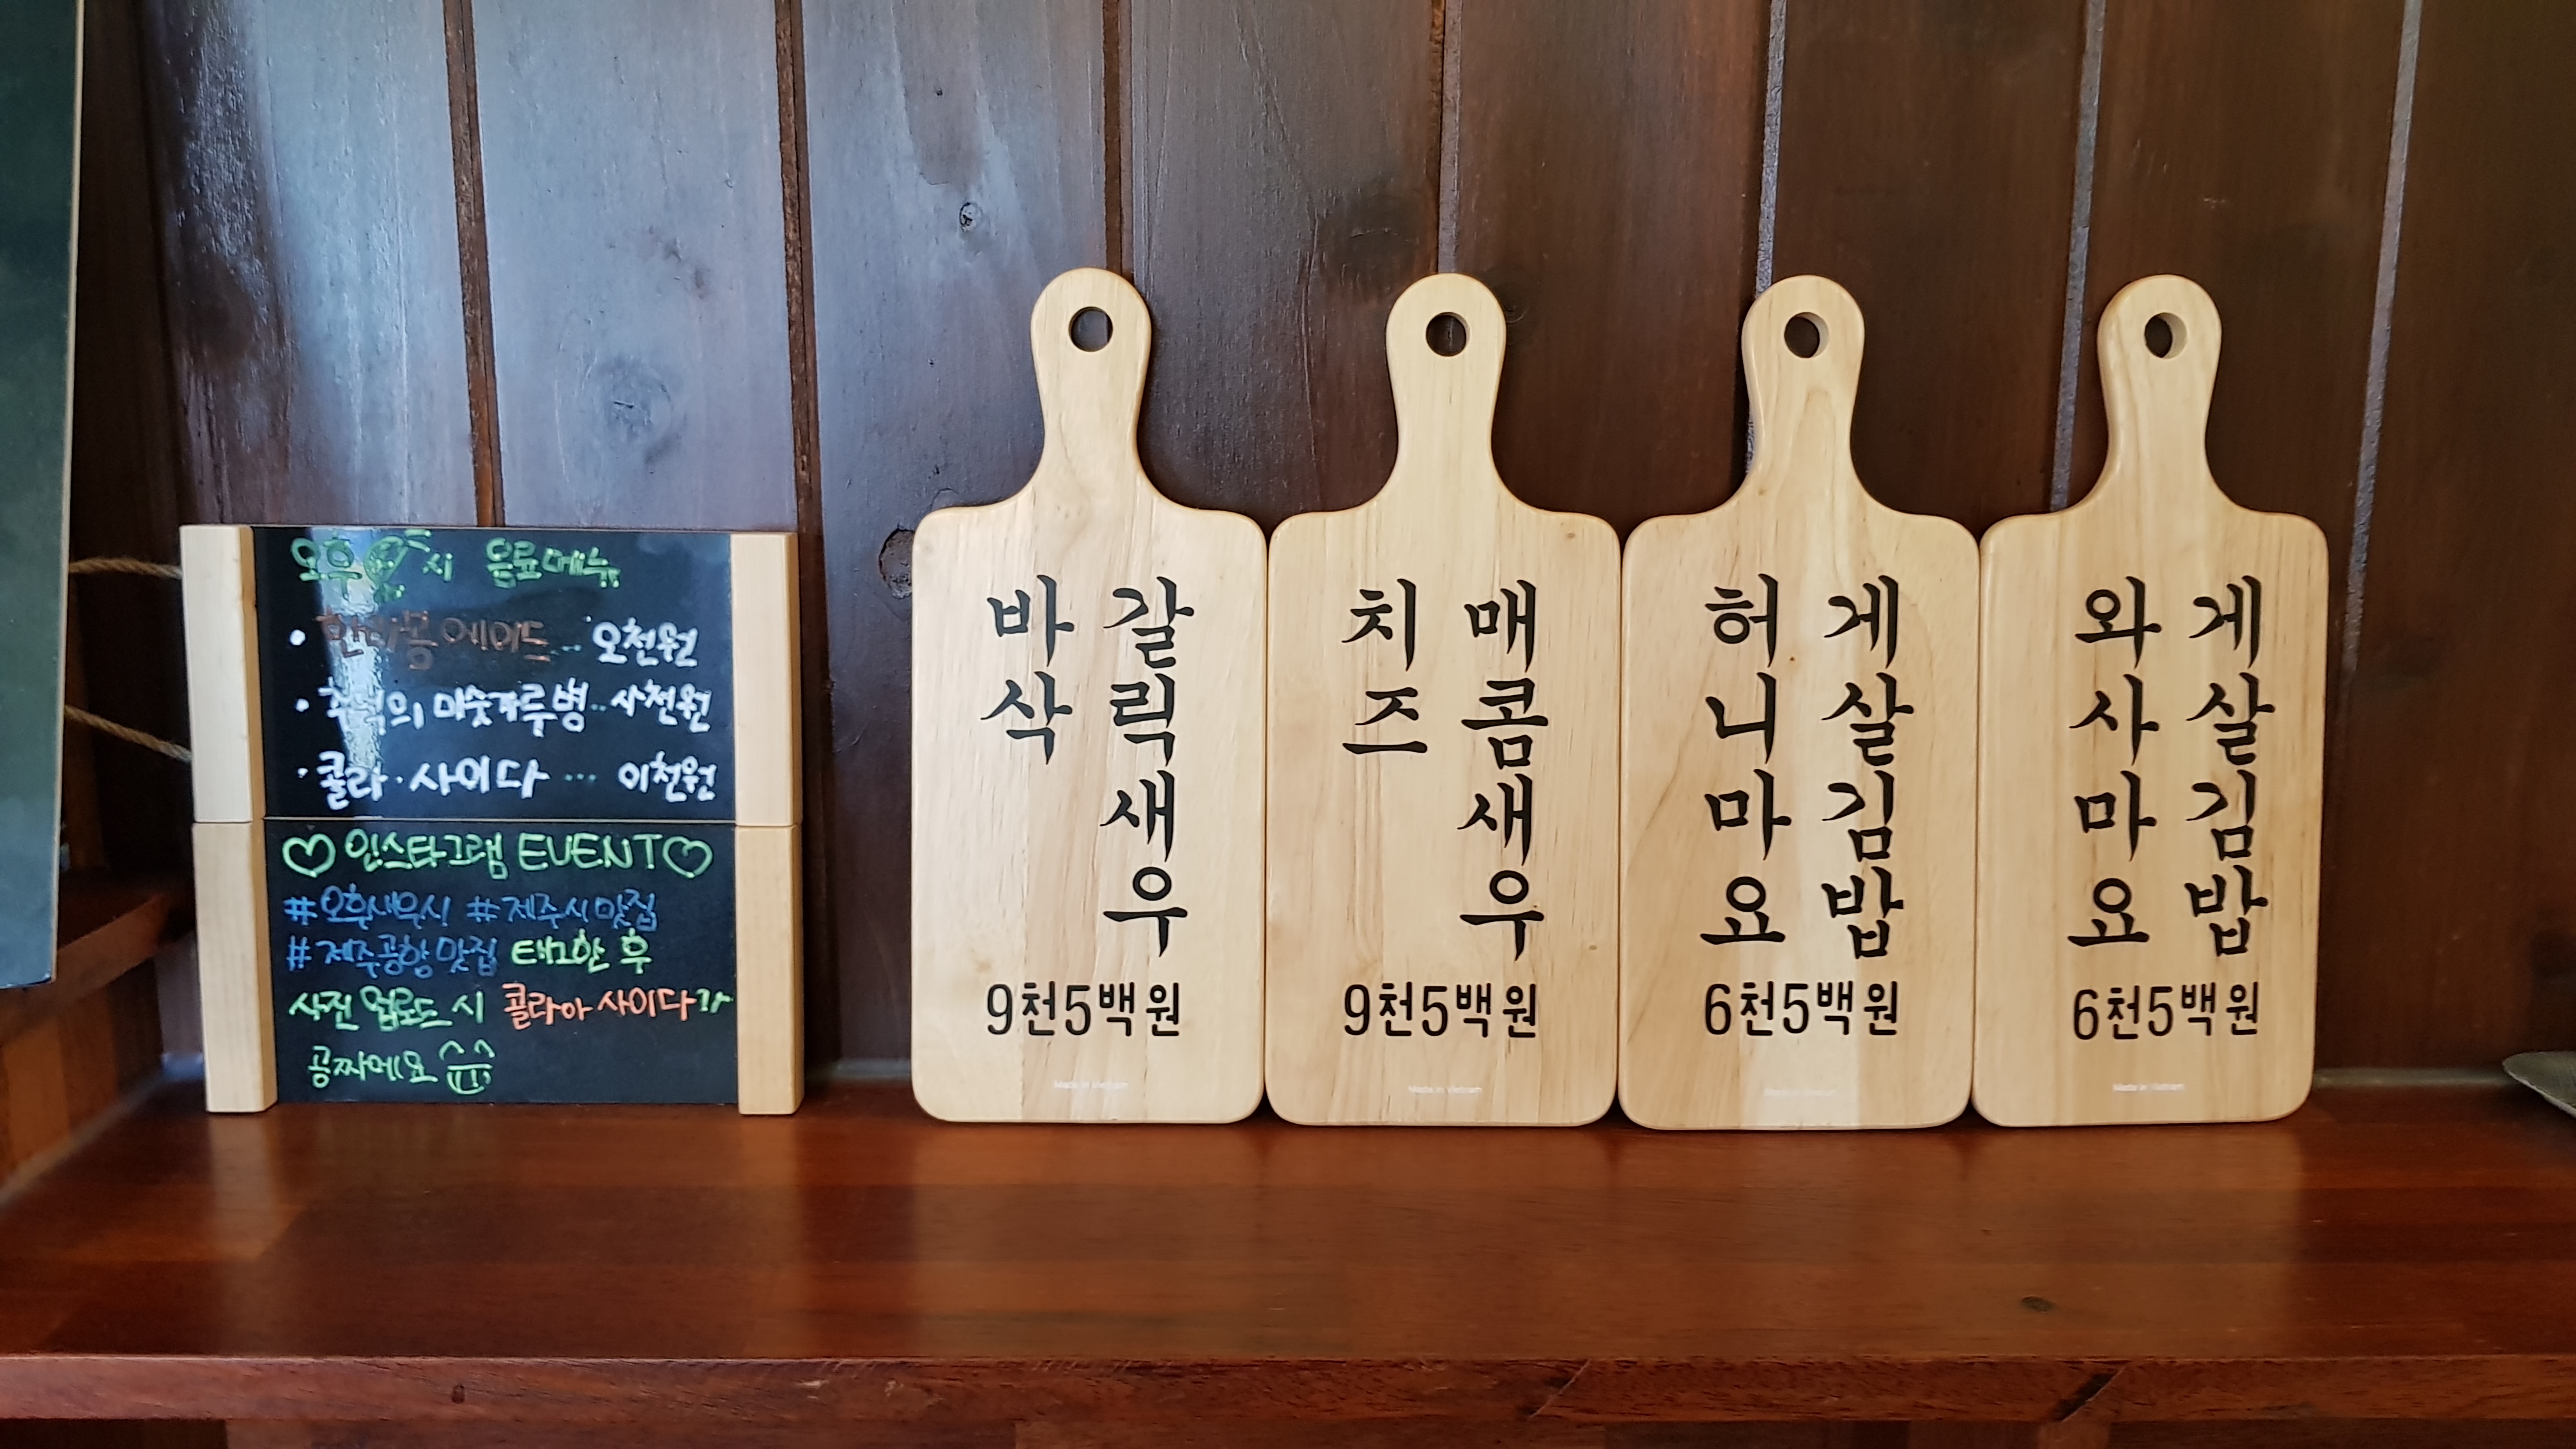 오후 시 음료메뉴
• 한라봉에이드 ... 오천원
• 추억의 미숫가루병 .. 사천원
· 콜라 · 사이다 ... 이천원
♡ 인스타그램 EVENT ♡
#오후새우시 #제주시맛집
#제주공항맛집 태그한 후
사진 업로드 시 콜라아 사이다가
공짜에요
바삭
갈릭새우
9천5백원
Made in Vietnam
치즈
매콤새우
9천5백원
Made in Vietnam
허니마요
게살김밥
6천5백원
와사마요
게살김밥
6천5백원
Made in Vietnam